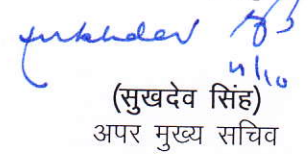 Sukhdev
4/10
(सुखदेव सिंह)
अपर मुख्य सचिव